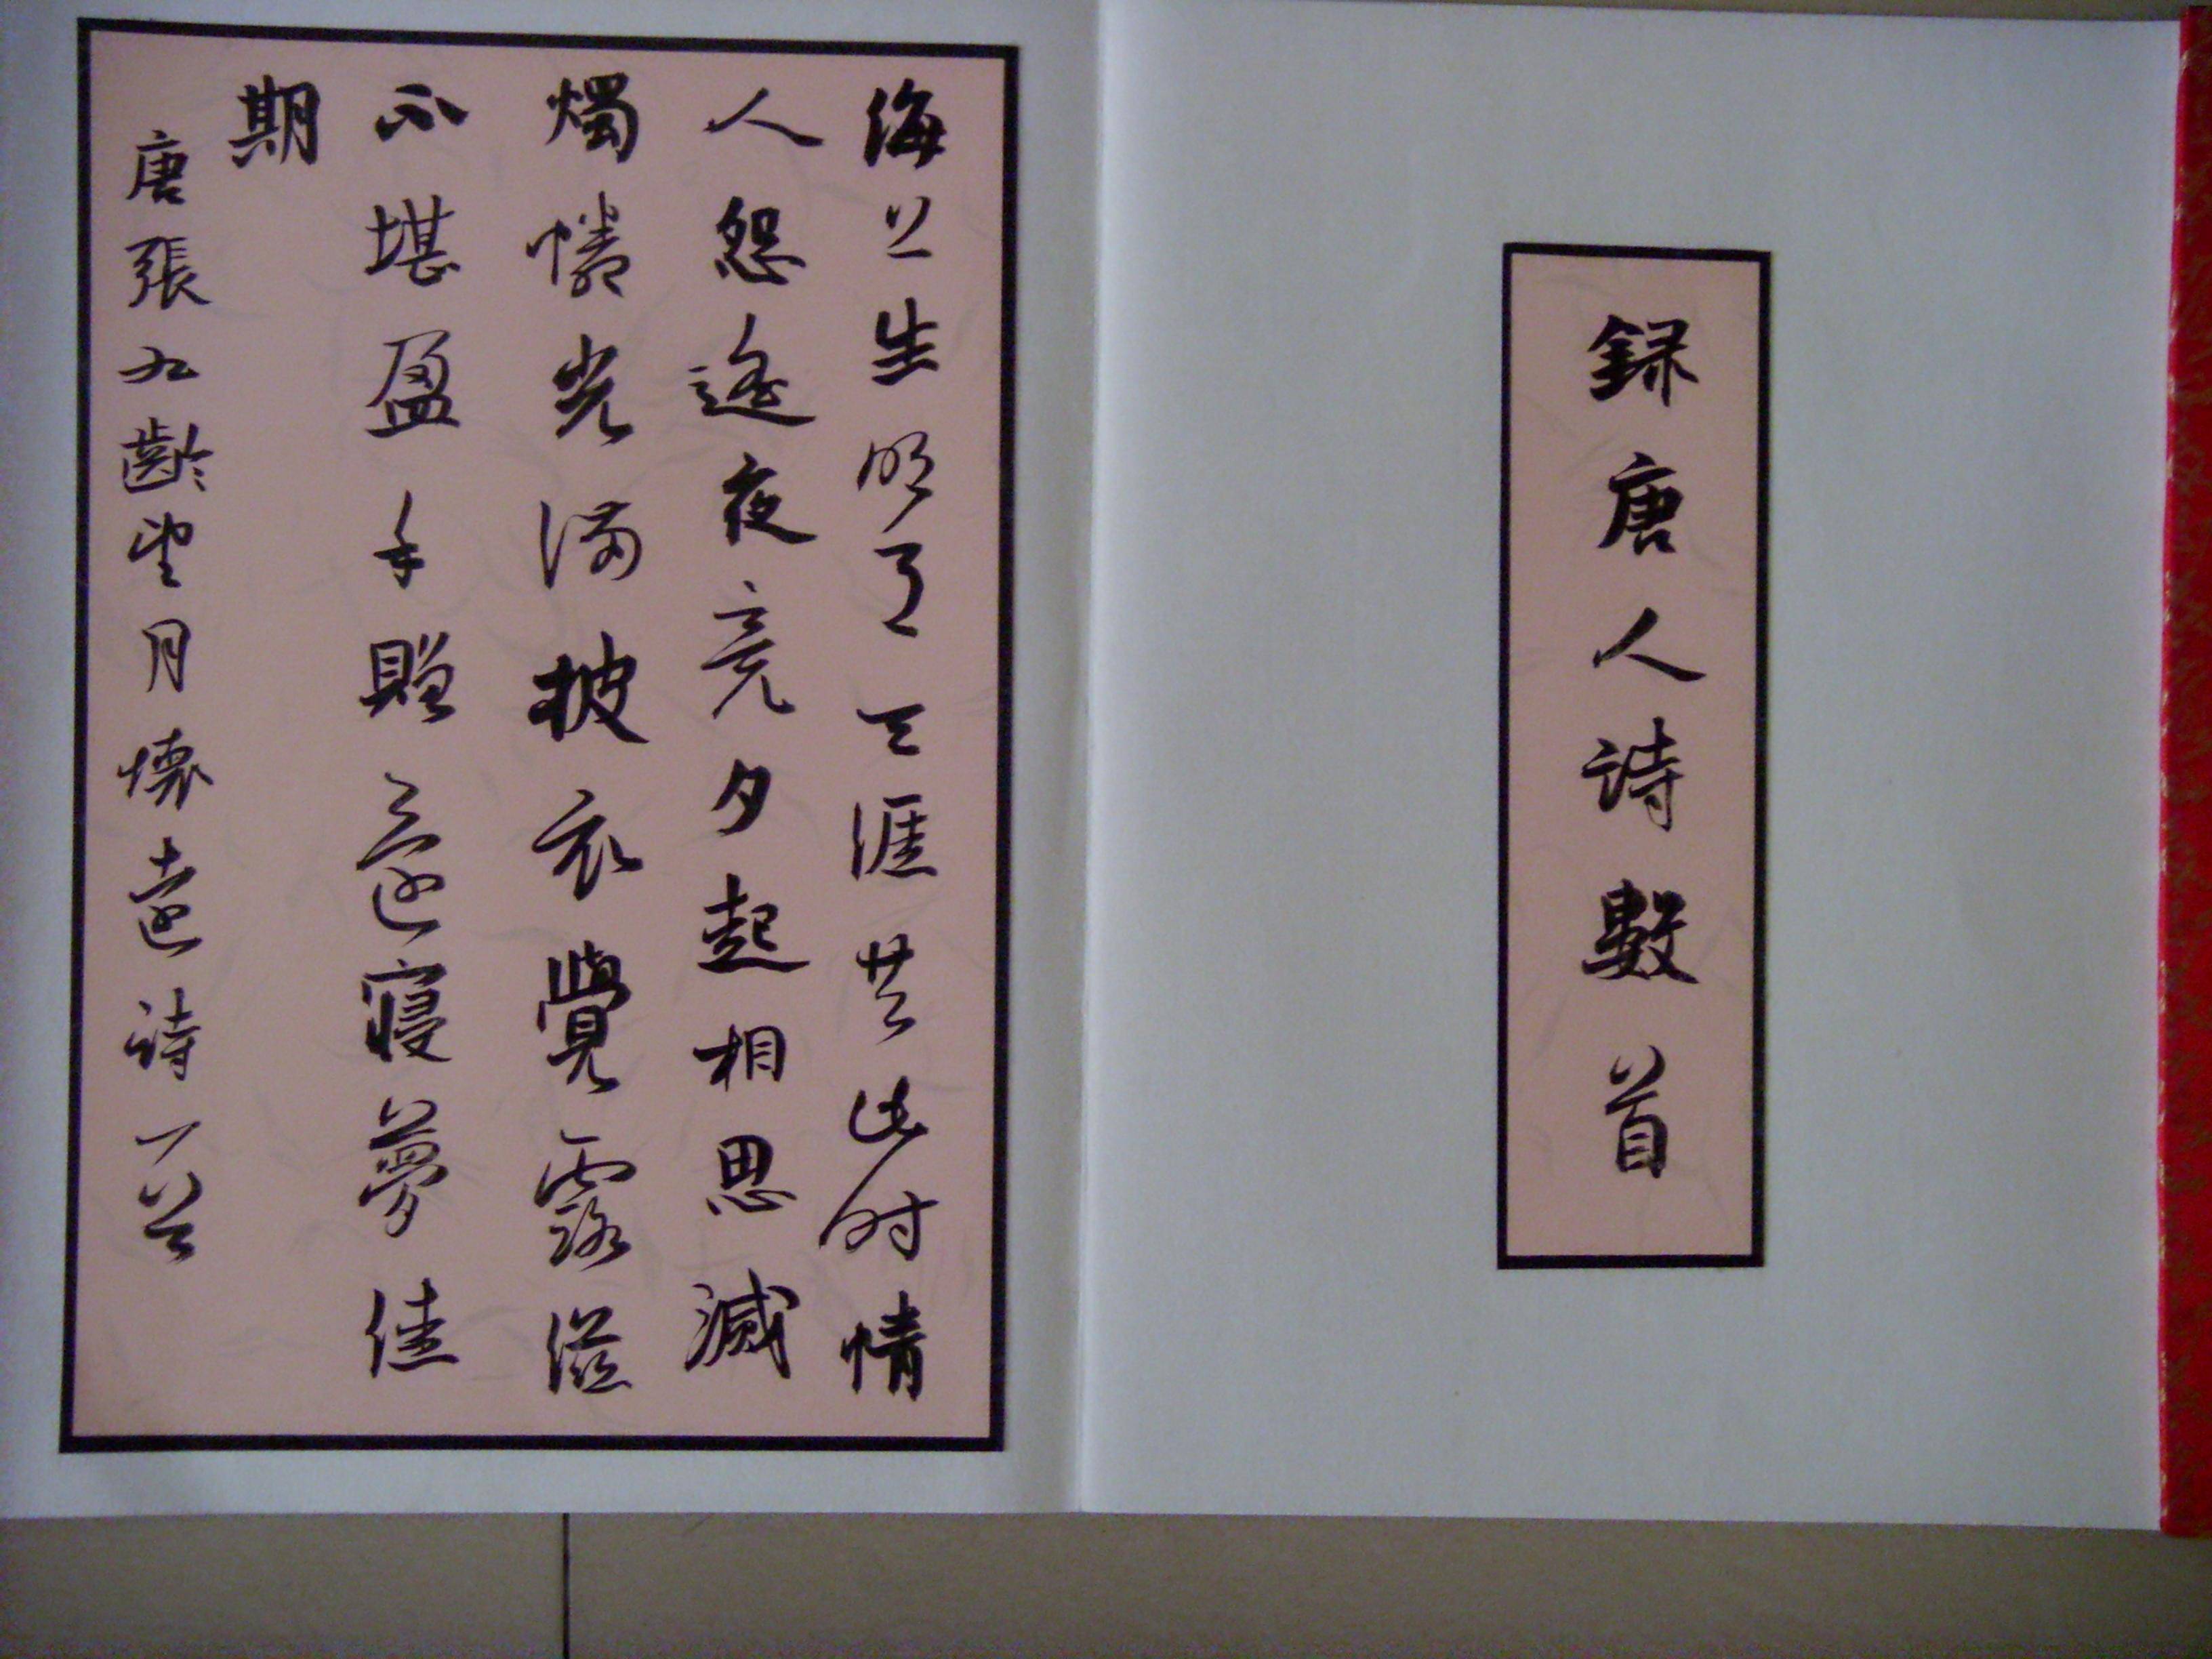 録唐人詩數首
海上生明月天涯共此時情
人怨遙夜竟夕起相思滅
燭憐光滿披衣覺露滋
不堪盈手贈還寢夢佳
期
唐張九齡望月懷遠詩一首